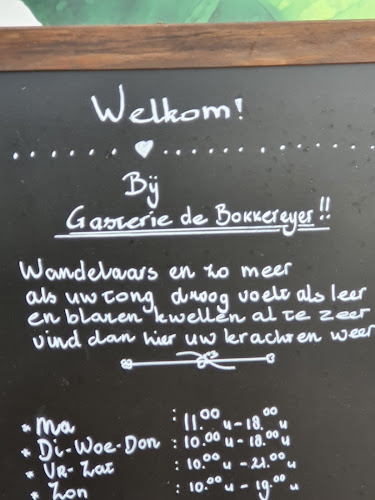 Welkom!
Bij
Gasterie de Bokkereyer!!
Wandelaars en zo meer
als uw tong droog voelt als leer
en blaren kwellen al te zeer
vind dan hier uw krachten weer
* Ma : 11.00 u - 18.00 u
* Di - Woe - Don : 10.00 u - 18.00 u
* VR - Zat : 10.00 u - 21.00 u
* Zon : 10.00 u - 19.00 u